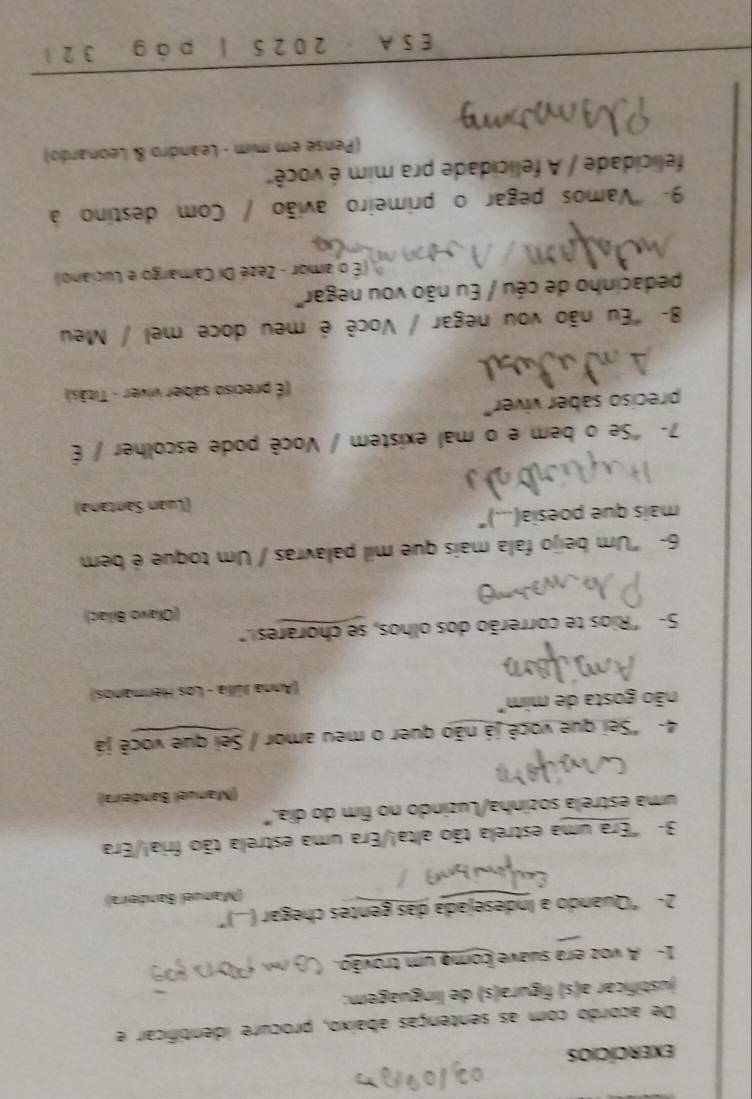 EXERCÍCIOS
De acordo com as sentenças abaixo, procure identificar e
justificar a(s) figura(s) de linguagem:
1- A voz era suave como um trovão. Comparação
2- "Quando a Indesejada das gentes chegar (...)"
(Manuel Bandeira)
Eufemismo /
3- "Era uma estrela tão alta!/Era uma estrela tão fria!/Era
uma estrela sozinha/Luzindo no fim do dia."
(Manuel Bandeira)
4- "Sei que você já não quer o meu amor / Sei que você já
não gosta de mim"
(Anna Júlia - Los Hermanos)
5- "Rios te correrão dos olhos, se chorares!."
(Olavo Bilac)
6- "Um beijo fala mais que mil palavras / Um toque é bem
mais que poesia(...)"
(Luan Santana)
7- "Se o bem e o mal existem / Você pode escolher / É
preciso saber viver"
(É preciso saber viver - Titãs)
Antitese
8- "Eu não vou negar / Você é meu doce mel / Meu
pedacinho de céu / Eu não vou negar"
(É o amor - Zezé Di Camargo e Luciano)
9- "Vamos pegar o primeiro avião / Com destino à
felicidade / A felicidade pra mim é você"
(Pense em mim - Leandro & Leonardo)
ESA · 2025 | pág 321